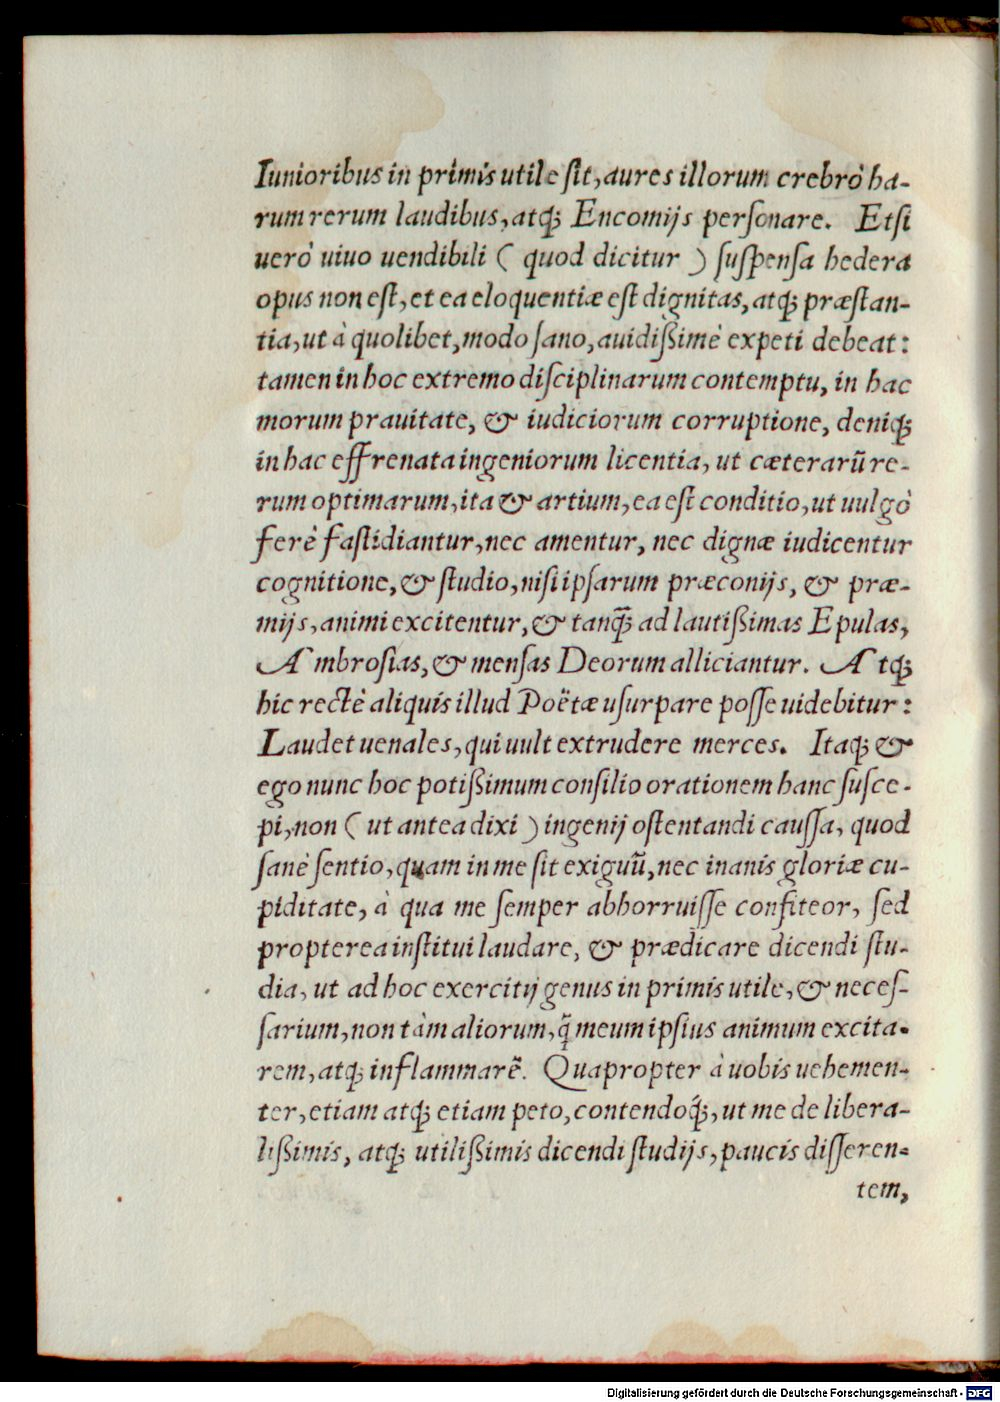 Iunioribus in primis utile sit, aures illorum crebrò ha-
rum rerum laudibus, atq; Encomijs personare. Etsi
uerò uiuo uendibili ( quod dicitur ) suspensa hedera
opus non est, et ea eloquentiæ est dignitas, atq; præstan-
tia, ut à quolibet, modo sano, auidißimè expeti debeat:
tamen in hoc extremo disciplinarum contemptu, in hac
morum prauitate, & iudiciorum corruptione, deniq;
in hac effrenata ingeniorum licentia, ut cæterarũ re-
rum optimarum, ita & artium, ea est conditio, ut uulgò
ferè fastidiantur, nec amentur, nec dignæ iudicentur
cognitione, & studio, nisi ipsarum præconijs, & præ-
mijs, animi excitentur, & tanq̃; ad lautißimas Epulas,
Ambrosias, & mensas Deorum alliciantur. Atq;
hic rectè aliquis illud Poëtæ usurpare posse uidebitur:
Laudet uenales, qui uult extrudere merces. Itaq; &
ego nunc hoc potißimum consilio orationem hanc susce-
pi, non ( ut antea dixi ) ingenij ostentandi caussa, quod
sanè sentio, quam in me sit exiguũ, nec inanis gloriæ cu-
piditate, à qua me semper abhorruisse confiteor, sed
propterea institui laudare, & prædicare dicendi stu-
dia, ut ad hoc exercitij genus in primis utile, & neces-
sarium, non tàm aliorum, q̃ meum ipsius animum excita-
rem, atq; inflammarẽ. Quapropter à uobis uehemen-
ter, etiam atq; etiam peto, contendoq́;, ut me de libera-
lißimis, atq; utilißimis dicendi studijs, paucis disseren-
tem,
Digitalisierung gefördert durch die Deutsche Forschungsgemeinschaft - DFG